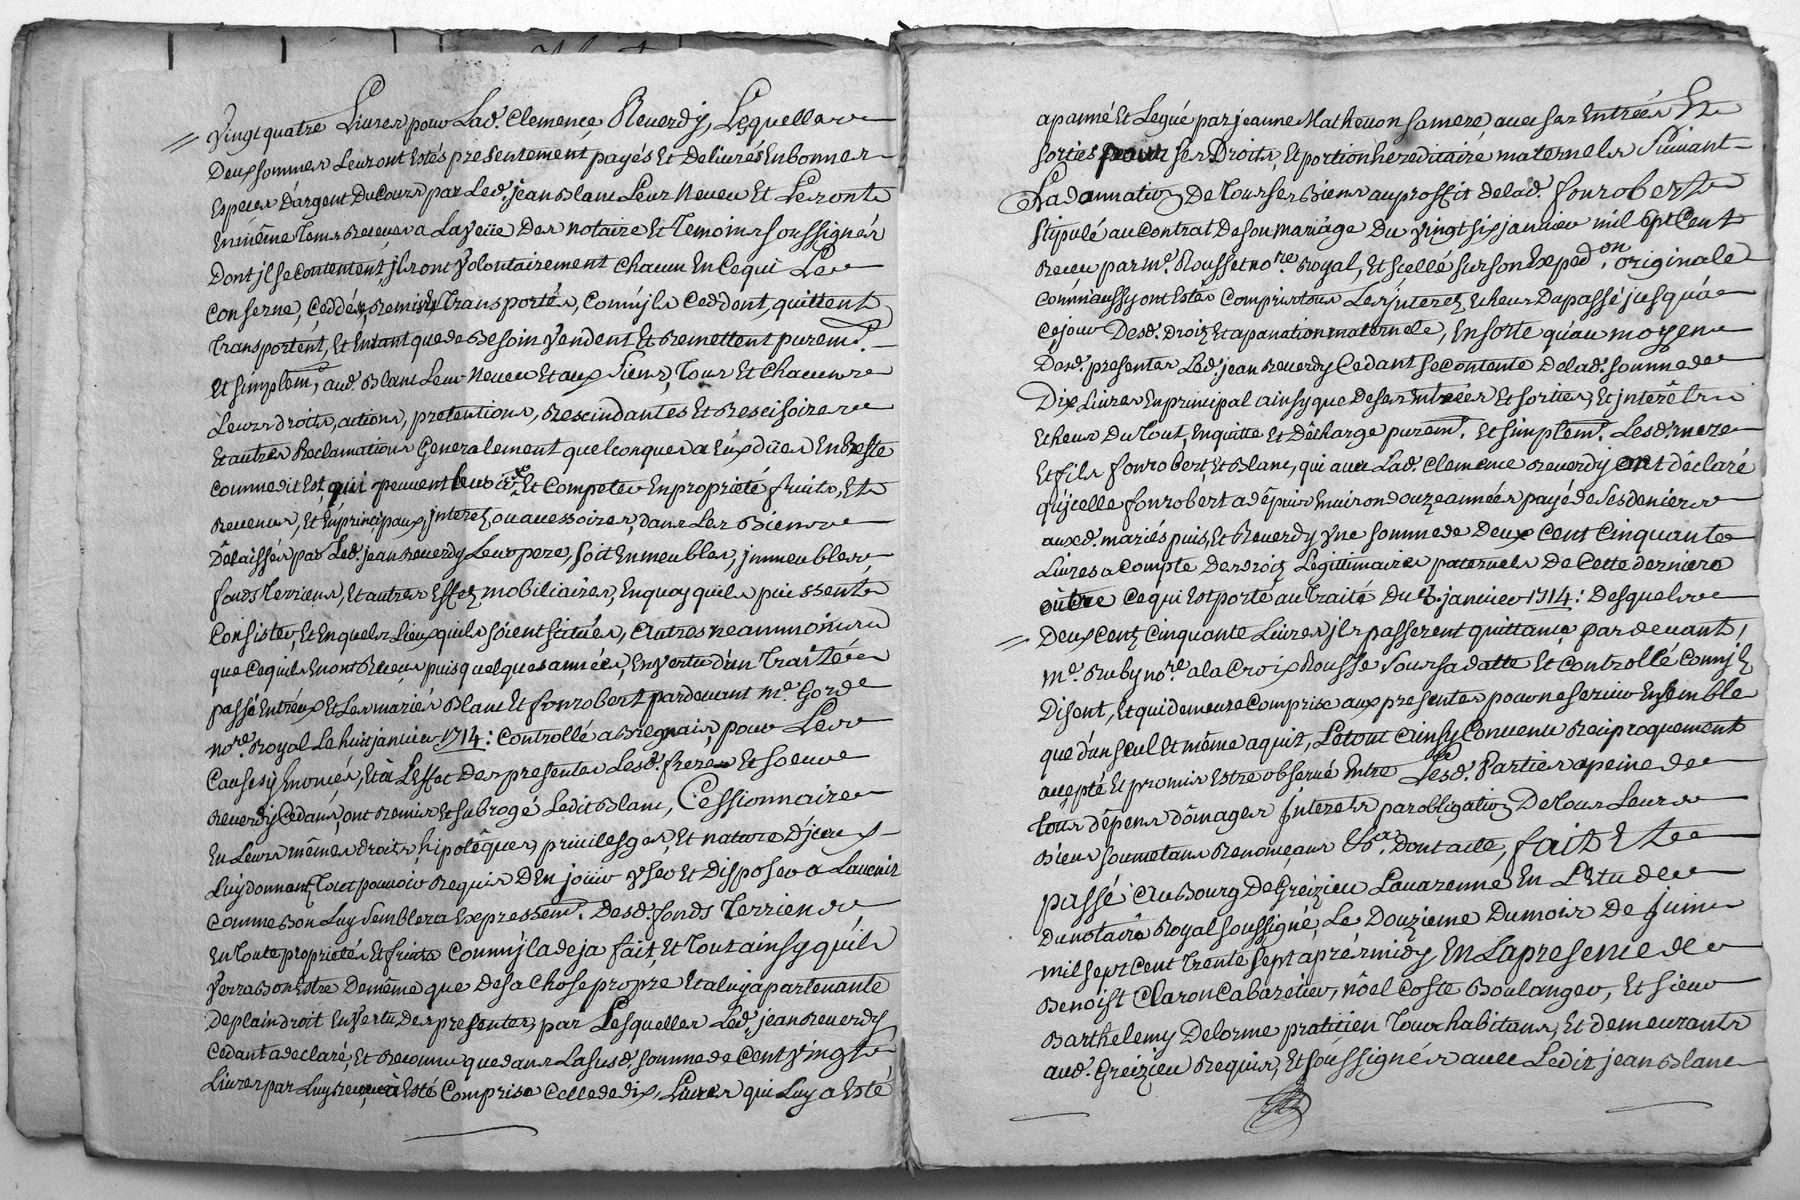 Vingt quatre Livres pour Lad. Clemence Reverdy, Lesquelles
Deux sommes Leur ont Estés presentement payés Et Delivrés En bonnes
Especes D'argent Du Cours par Led. jean Blanc Leur Neveu Et Les ont
En même Tems Receues a La veüe Des notaire Et Temoins soussignés
Dont jls se Contentent, jls ont Volontairement Chacun En Ce qui Les
Conserne, Ceddés, Remis Et Transportés, Comm'jls Ceddent, quittent
Transportent, Et En tant que de Besoin Vendent Et Remettent purem.t
Et simplem.t, aud. Blanc Leur Neveu Et aux Siens, Tous Et Chacuns
Leurs droits, actions, pretentions, Rescindantes Et Rescisoires
Et autres Reclamations Generalement quelconques a Eux düés En Reste
Comme dit Est qui peuvent leurs Et Competer En propriété fruits, Et
Revenus, Et En principaux, jnterez ou accessoires, dans Les Biens
Délaissés par Led. jean Reverdy Leur pere, soit En meubles, jmmeubles,
fonds Terriens, Et autres Effez mobiliaires, En quoy qu'ils puissent
Consister, Et En quels Lieux qu'ils soient scitués, Autres neammoins
que Ce qu'ils En ont Receu puis quelques années, En Vertu d'un Traité
passé Entr'eux Et Les mariés Blanc Et fonrobert pardevant M.e Gorde
no.re Royal Le huit janvier 1714: Controllé a Bregnais, pour Les
Causes y Enoncés, Et a L'effet Des presentes Lesd. freres Et soeur
Reverdy Cedans, ont Remis Et subrogé Ledit Blanc, Cessionnaire
En Leurs mêmes droits, hipotêques, privilesges, Et nature D'jceux
Luy donnant Tout pouvoir Requis D'En joüir User Et Disposer a L'avenir
Comme Bon Luy Semblera Expressem.t Desd. fonds Terriens
En Toute proprietés Et fruits Comm'jl a deja fait, Et Tout ainsy qu'il
Verra Bon Estre De même que De sa Chose propre Et a luy apartenante
De plain droit En Vertu Des presentes, par Lesquelles Led. jean Reverdy
Cedant a declaré, Et Reconnu que dans La susd. somme de Cent Vingt
Livres par Luy receue a Esté Comprise Celle de dix Livres qui Luy a Esté
apanné Et Legué par jeanne Mathevon sa mere, avec ses Entrées Et
sorties pour ses Droits, Et portion hereditaire maternels Suivant
La donnation De Tous ses Biens au proffit de lad. fonrobert
stipulé au Contrat De son mariage Du Vingt six janvier mil sept Cent
Receu par M.e Rousset no.re Royal, Et scellé sur son Exped.on originale
Comm'aussy ont Estés Compris tous Les jnterez Echeus Du passé jusqu'a
Ce jour Desd. Droiz Et apanation maternele, En sorte qu'au moyen
Desd. presentes Led. jean Reverdy Cedant se Contente De lad. somme de
Dix Livres En principal ainsy que De ses Entrées Et sorties, Et jnterêts
Echeus Du Tout, En quitte Et Décharge purem.t Et simplem.t Lesd. mere
Et fils fonrobert, Et Blanc, qui avec Lad. Clemence Reverdy ont déclaré
qu'jcelle fonrobert a dépuis Environ douze années payé de ses deniers
auxd. mariés puis, Et Reverdy, Une somme de Deux Cent Cinquante
Livres a Compte Des droiz Légittimaires paternels De Cette derniere
outre Ce qui Est porté au Traité Du 8. janvier 1714: Desquels
Deux Cent Cinquante Livres jls passerent quittance pardevant,
M.e Ruby no.re a la Croix Rousse sous sa datte Et Controllé Comm'jlz
Disent, Et qui demeure Comprise aux presentes pour ne servir Ensemble
que d'un seul Et même aquit, Le tout Ainsy Convenu Reciproquement
accepté Et promis Estre observé Entre Lesd. Parties a peine de
tous dépens dômages Jnterets par obligation De Tous Leurs
Biens soumetans Renonceans &c. Dont acte, fait Et
passé Au Bourg De Greizieu Lavarenne En L'Etude
Du notaire Royal soussigné, Le Douzieme Du mois De Juin
mil sept Cent Trente sept aprés midy En La presence de
Benoist Claron Cabaretier, nôel Coste Boulanger, Et sieur
Barthelemy Delorme praticien Tous habitans, Et demeurants
aud. Greizieu Requis, Et soussignés avec Ledit jean Blanc